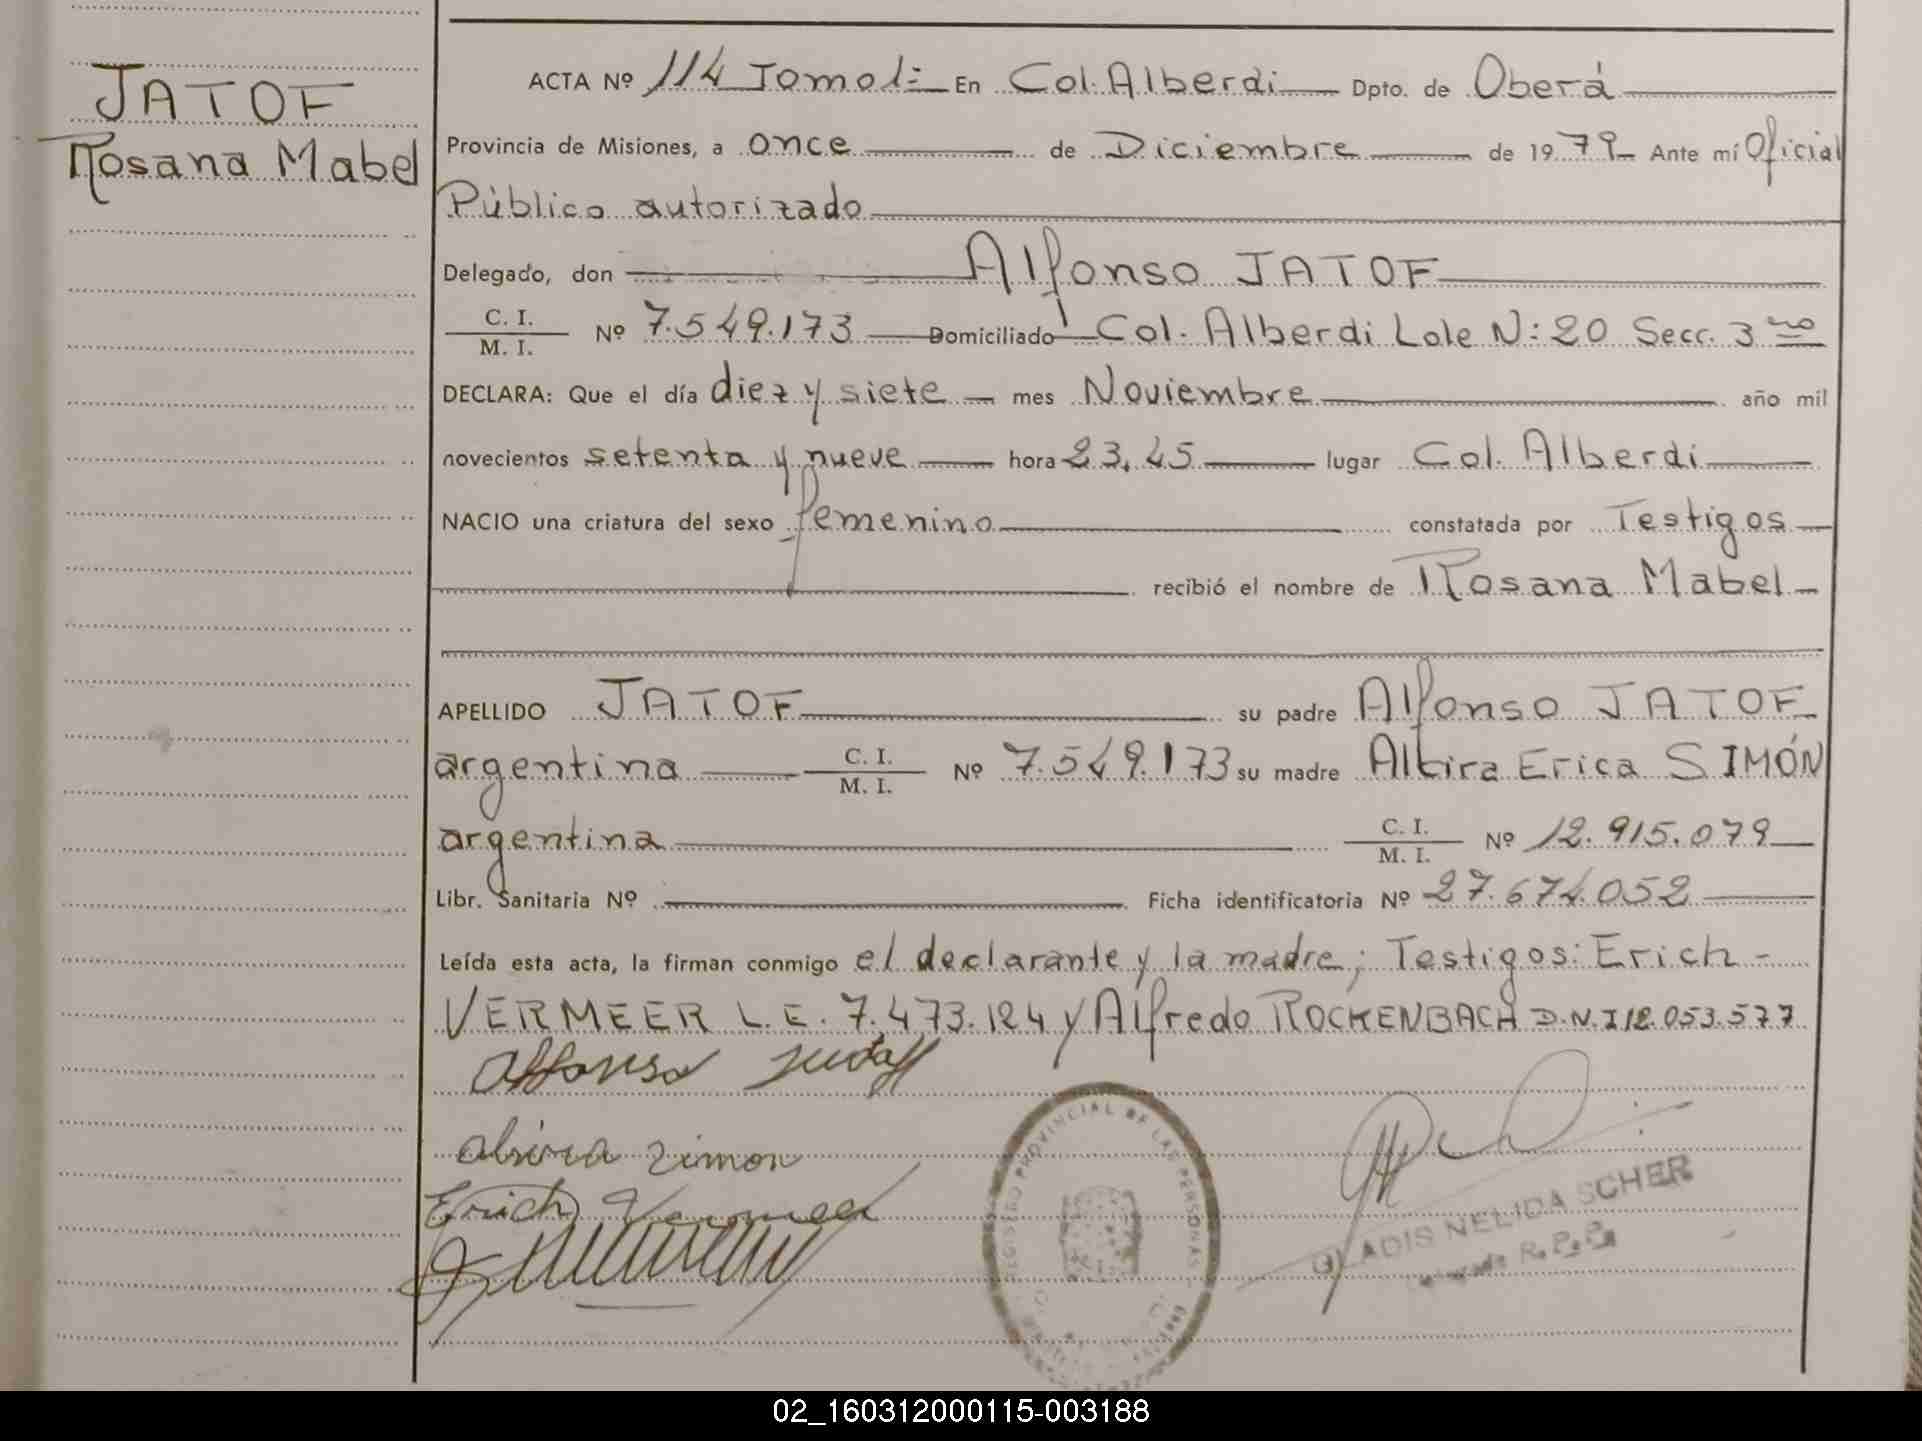 JATOF
Rosana Mabel
ACTA Nº 114 Tomo 1: En Col. Alberdi Dpto. de Oberá
Provincia de Misiones, a once de Diciembre de 1979 Ante mí Oficial
Público autorizado
Delegado, don Alfonso JATOF
C. I.
M. I. Nº 7.549.173 Domiciliado Col. Alberdi Lote N: 20 Secc. 3
DECLARA: Que el día diez y siete mes Noviembre año mil
novecientos setenta y nueve hora 23,45 lugar Col. Alberdi
NACIO una criatura del sexo femenino constatada por Testigos
recibió el nombre de Rosana Mabel
APELLIDO JATOF su padre Alfonso JATOF
argentina C. I.
M. I. Nº 7.549.173 su madre Altira Erica SIMÓN
argentina C. I.
M. I. Nº 12.915.079
Libr. Sanitaria Nº Ficha identificatoria Nº 27.674.052
Leída esta acta, la firman conmigo el declarante y la madre; Testigos: Erich
VERMEER L.E. 7.473.124 y Alfredo ROCKENBACH D.N.I 12.053.577
Alfonso
simon
Erich Vermeer
REGISTRO PROVINCIAL DE LAS PERSONAS
ADIS NELIDA SCHER
R. P. P.
02_160312000115-003188